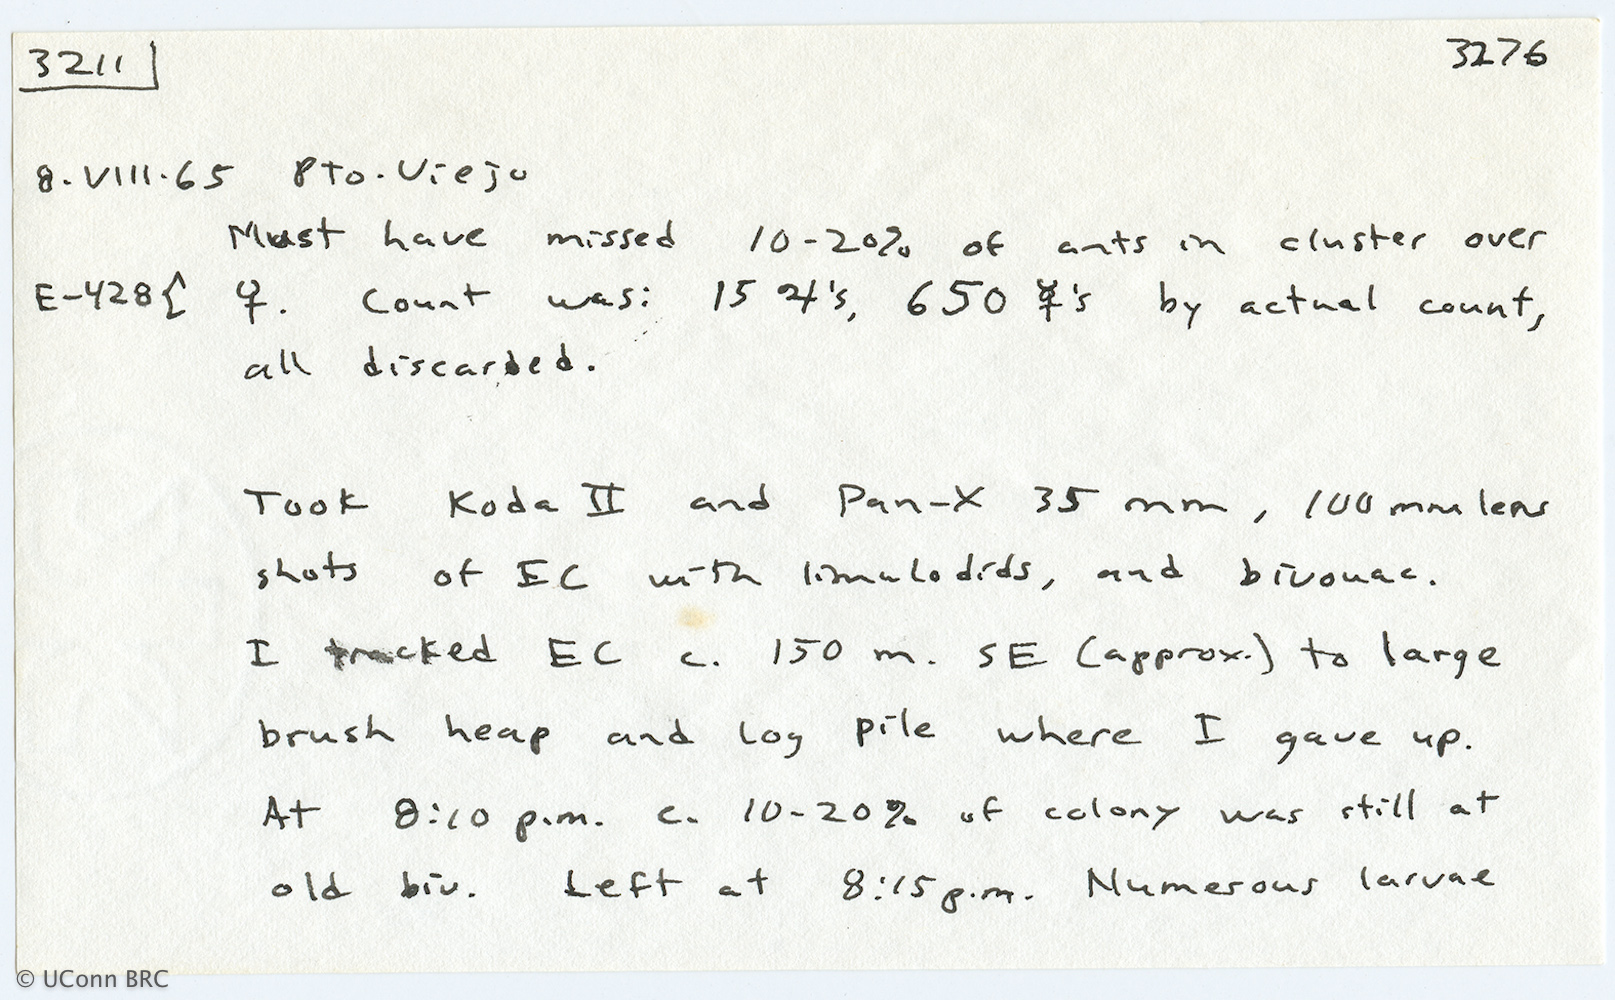 3211 3276
8.VIII.65 Pto. Viejo
Must have missed 10-20% of ants in cluster over
E-428{ ♀. Count was: 15 ♃'s, 650 ☿'s by actual count,
all discarded.
Took Koda II and Pan-X 35 mm, 100 mm lens
shots of EC with limulodids, and bivouac.
I tracked EC c. 150 m. SE (approx.) to large
brush heap and log pile where I gave up.
At 8:10 p.m. c. 10-20% of colony was still at
old biv. Left at 8:15 p.m. Numerous larvae
© UConn BRC